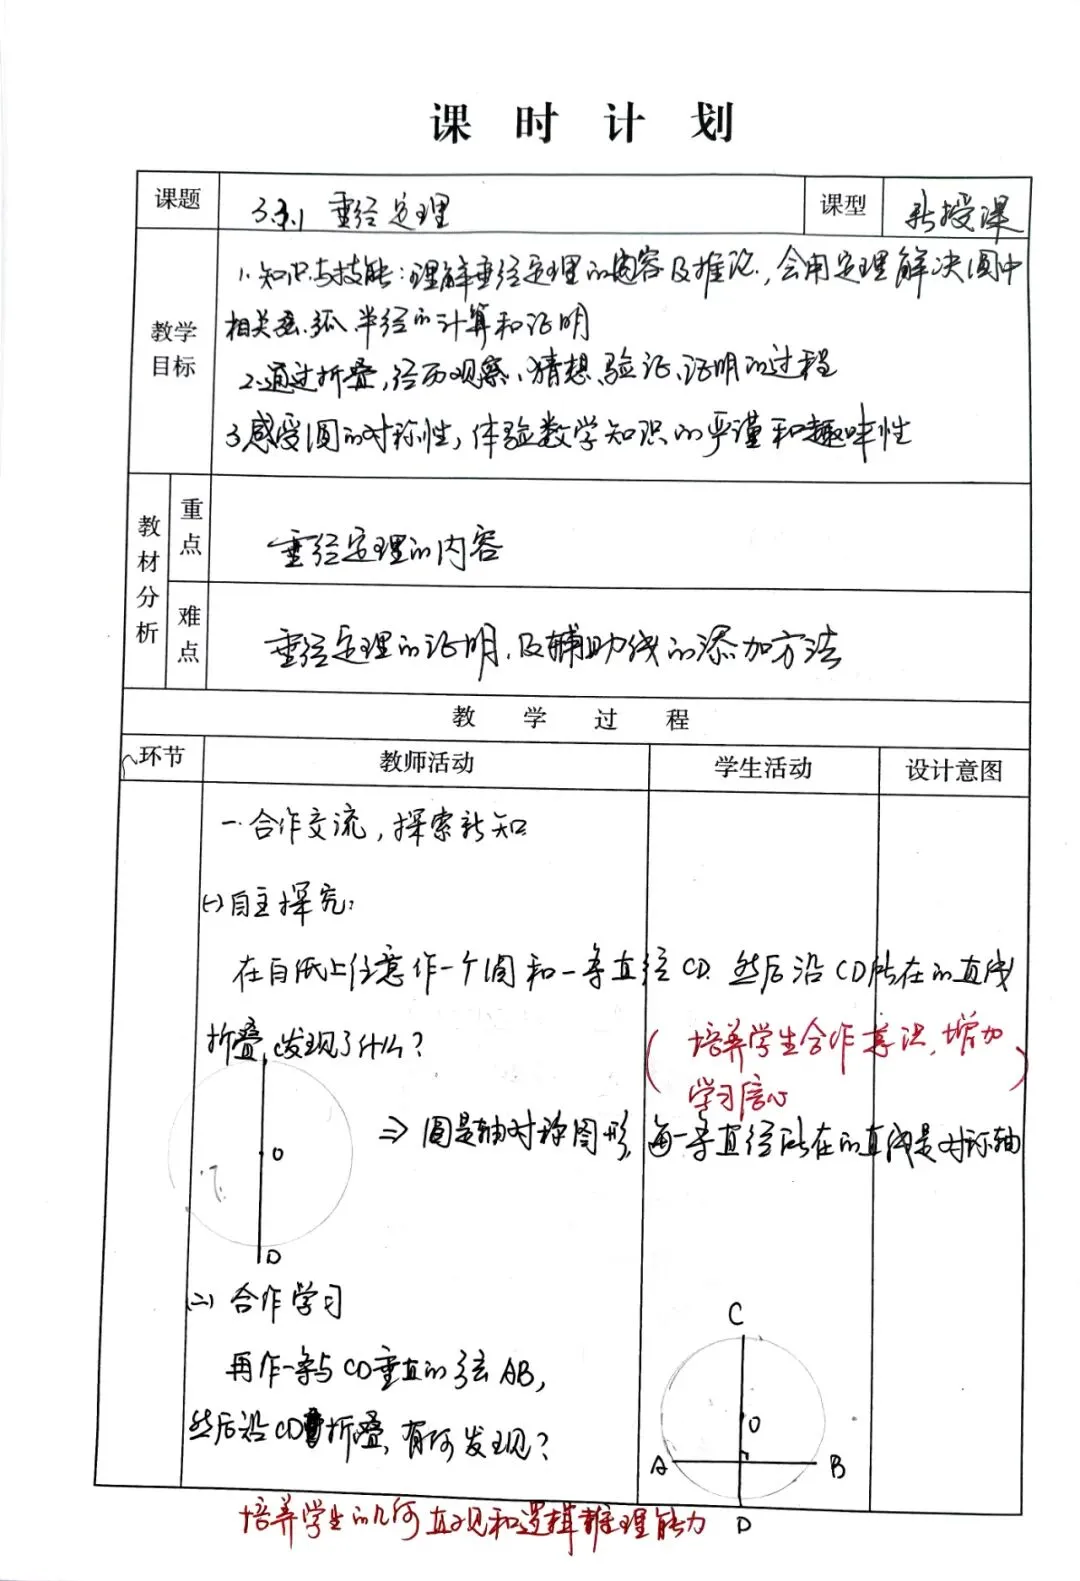 课时计划
课题 3.3.1 垂径定理 课型 新授课
教学目标
1. 知识与技能：理解垂径定理的内容及推论，会用定理解决圆中
相关弦、弧、半径的计算和证明
2. 通过折叠，经历观察、猜想、验证、证明的过程
3. 感受圆的对称性，体验数学知识的严谨和趣味性
教材分析
重点 垂径定理的内容
难点 垂径定理的证明，及辅助线的添加方法
教学过程
环节 教师活动 学生活动 设计意图
一. 合作交流，探索新知
(一) 自主探究：
在白纸上任意作一个圆和一条直径CD. 然后沿CD所在的直线
折叠，发现了什么？
（培养学生合作意识，增加
学习信心）
O
⇒ 圆是轴对称图形，每一条直径所在的直线是对称轴
D
(二) 合作学习
C
再作一条与CD垂直的弦AB，
O
然后沿CD折叠，有何发现？
A B
D
培养学生的几何直观和逻辑推理能力